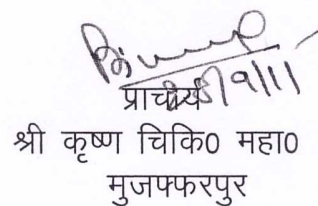 प्राचार्य
श्री कृष्ण चिकि0 महा0
मुजफ्फरपुर